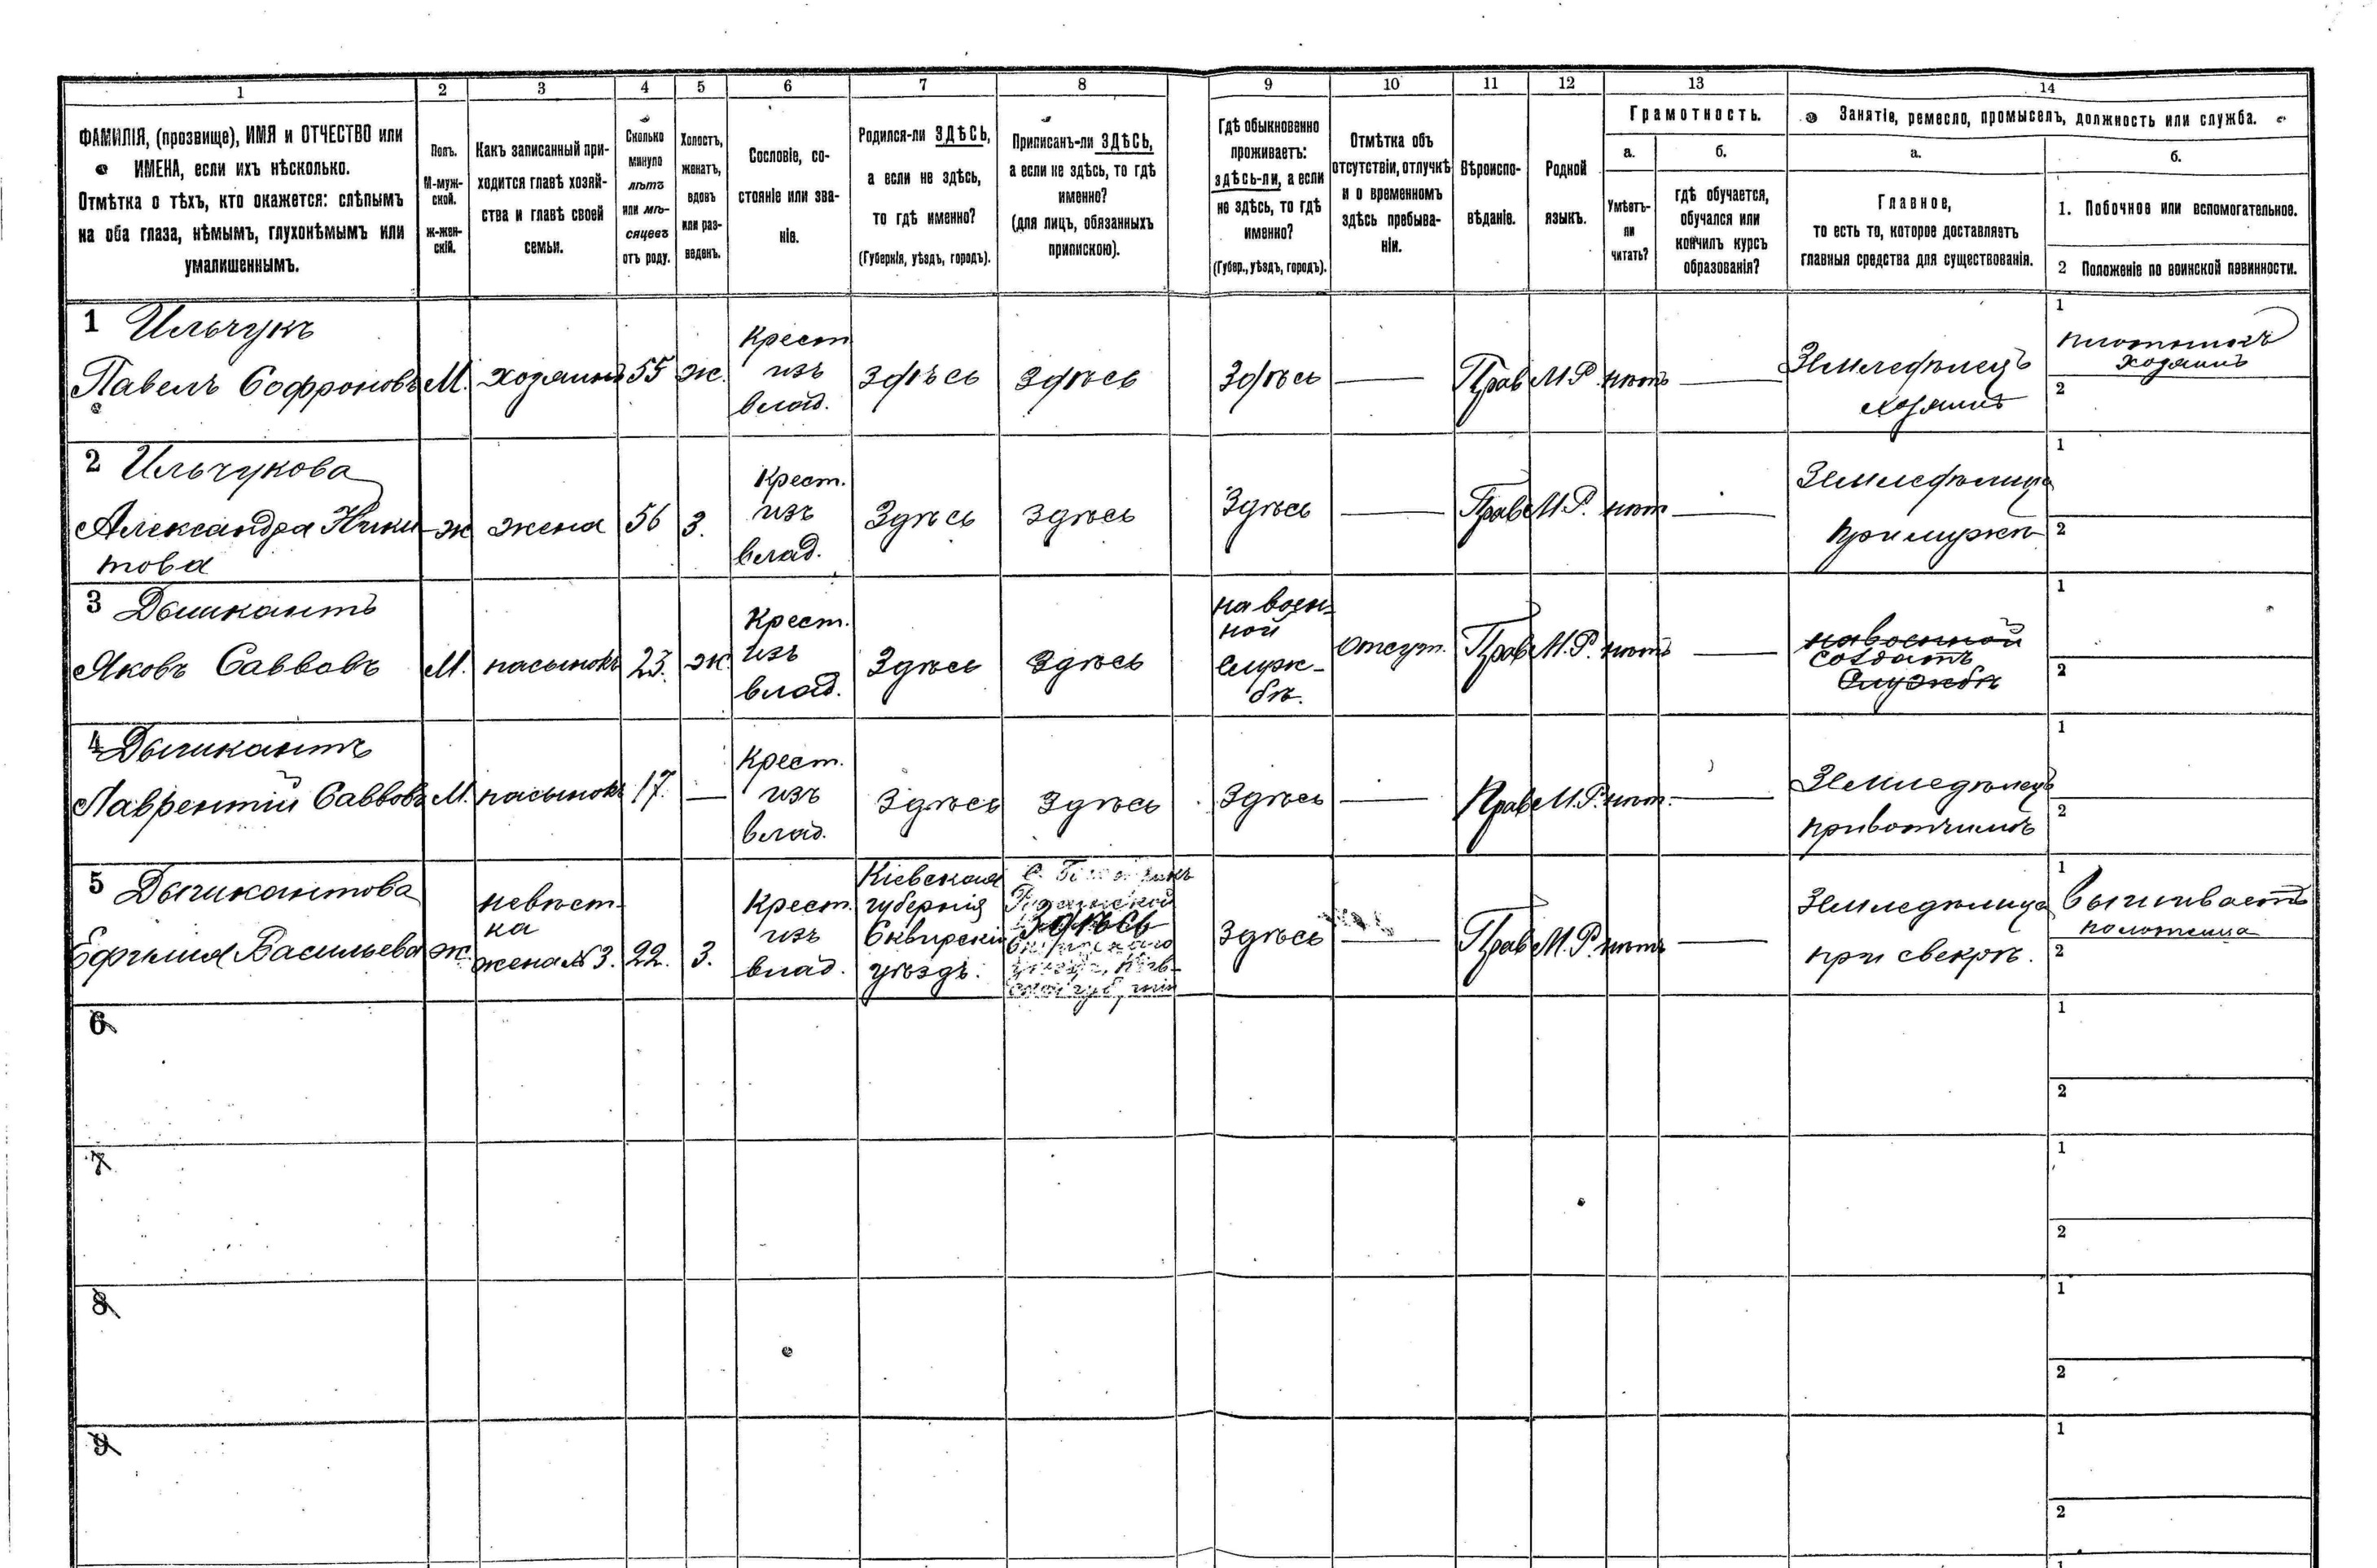 1 2 3 4 5 6 7 8 9 10 11 12 13 14
ФАМИЛІЯ, (прозвище), ИМЯ и ОТЧЕСТВО или
ИМЕНА, если ихъ нѣсколько.
Отмѣтка о тѣхъ, кто окажется: слѣпымъ
на оба глаза, нѣмымъ, глухонѣмымъ или
умалишеннымъ.
Полъ.
М-муж-
ской.
ж-жен-
скій.
Какъ записанный при-
ходится главѣ хозяй-
ства и главѣ своей
семьи.
Сколько
минуло
лѣтъ
или мѣ-
сяцевъ
отъ роду.
Холостъ,
женатъ,
вдовъ
или раз-
веденъ.
Сословіе, со-
стояніе или зва-
ніе.
Родился-ли ЗДѢСЬ,
а если не здѣсь,
то гдѣ именно?
(Губернія, уѣздъ, городъ).
Приписанъ-ли ЗДѢСЬ,
а если не здѣсь, то гдѣ
именно?
(для лицъ, обязанныхъ
припискою).
Гдѣ обыкновенно
проживаетъ:
здѣсь-ли, а если
не здѣсь, то гдѣ
именно?
(Губер., уѣздъ, городъ).
Отмѣтка объ
отсутствіи, отлучкѣ
и о временномъ
здѣсь пребыва-
ніи.
Вѣроиспо-
вѣданіе.
Родной
языкъ.
Грамотность.
а.
Умѣетъ-
ли
читать?
б.
гдѣ обучается,
обучался или
кончилъ курсъ
образованія?
Занятіе, ремесло, промыселъ, должность или служба.
а.
Главное,
то есть то, которое доставляетъ
главныя средства для существованія.
б.
1. Побочное или вспомогательное.
2 Положеніе по воинской повинности.
1 Ильчукъ
Павелъ Софроновъ
М.
хозяинъ
55
ж.
Крест
изъ
влад.
Здѣсь
Здѣсь
Здѣсь
—
Прав
М.Р.
нѣтъ
—
Земледѣлецъ
хозяинъ
1
плотникъ
хозяинъ
2
2 Ильчукова
Александра Ники
това
ж
жена
56
З.
Крест.
изъ
влад.
Здѣсь
Здѣсь
Здѣсь
—
Прав
М.Р.
нѣт
—
Земледѣлица
при мужѣ
1
2
3 Дышкантъ
Яковъ Саввовъ
М.
пасынокъ
23.
ж
Крест.
изъ
влад.
Здѣсь
Здѣсь
на воен-
ной
служ-
бѣ.
Отсут.
Прав
М.Р.
нѣтъ
—
на военной
солдатъ
службѣ
1
2
4 Дышкантъ
Лаврентій Саввовъ
М.
пасынокъ
17.
—
Крест.
изъ
влад.
Здѣсь
Здѣсь
Здѣсь
—
Прав
М.Р.
нѣт.
—
Земледѣлецъ
при вотчимѣ
1
2
5 Дышкантова
Ефимія Васильева
ж.
невѣст-
ка
жена № 3.
22.
З.
Крест.
изъ
влад.
Кіевская
губернія
Сквирскій
уѣздъ.
Здѣсь
Здѣсь
—
Прав
М.Р.
нѣтъ
—
Земледѣлица
при свекрѣ.
1
Вышиваетъ
полотенца
2
6
1
2
7
1
2
8
1
2
9
1
2
1